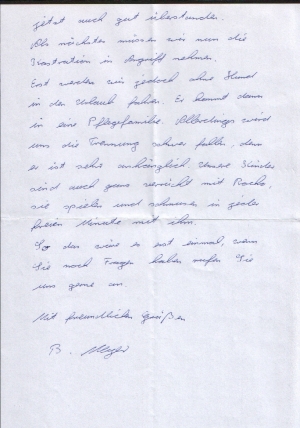 jetzt auch gut überstanden.
Als nächstes müssen wir nun die
Kastration in Angriff nehmen.
Erst werden wir jedoch ohne Hund
in den Urlaub fahren. Er kommt dann
in eine Pflegefamilie. Allerdings wird
uns die Trennung schwer fallen, denn
er ist sehr anhänglich. Unsere Kinder
sind auch ganz verrückt mit Rocko,
sie spielen und schmusen in jeder
freien Minute mit ihm.
So das wäre es erst einmal, wenn
Sie noch Fragen haben rufen Sie
uns gerne an.
Mit freundlichen Grüßen
B.